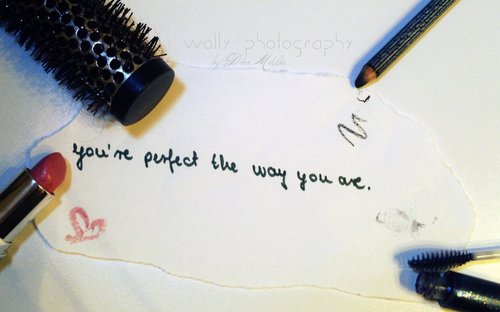 wolly photography
by
you're perfect the way you are.